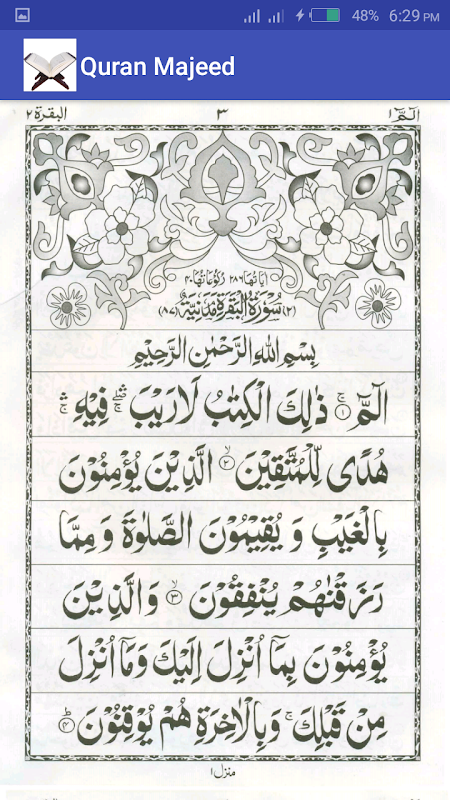 48% 6:29 PM
Quran Majeed
الٓمّٓ ١ ٣ البقرة ٢
اٰیَاتُهَا ٢٨٦ رُكُوعَاتُهَا ٤٠
(٢) سُوْرَةُ الْبَقَرَةِ مَدَنِيَّةٌ (٨٧)
بِسْمِ اللهِ الرَّحْمٰنِ الرَّحِيْمِ
الٓمّٓ ۚ﴿١﴾ ذٰلِكَ الْكِتٰبُ لَا رَيْبَ ۛ ۖ فِيْهِ ۛ
هُدًى لِّلْمُتَّقِيْنَ ﴿٢﴾ۙ الَّذِيْنَ يُؤْمِنُوْنَ
بِالْغَيْبِ وَ يُقِيْمُوْنَ الصَّلٰوةَ وَ مِمَّا
رَزَقْنٰهُمْ يُنْفِقُوْنَ ﴿٣﴾ۙ وَالَّذِيْنَ
يُؤْمِنُوْنَ بِمَآ اُنْزِلَ اِلَيْكَ وَمَآ اُنْزِلَ
مِنْ قَبْلِكَ ۚ وَبِالْاٰخِرَةِ هُمْ يُوْقِنُوْنَ ﴿٤﴾ؕ
منزل ١